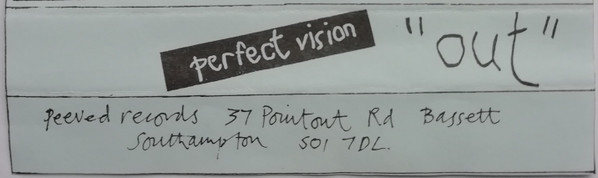 perfect vision "out"
peeved records 37 Pointout Rd Bassett
Southampton SO1 7DL.